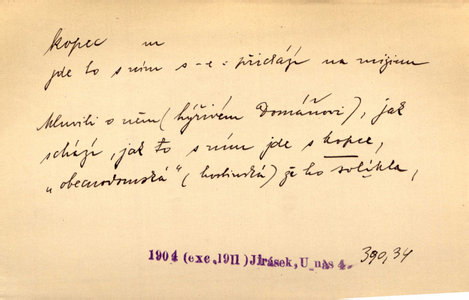 kopec m
jde to s ním s-e: přichází na mizinu
Mluvili o něm (hýřivém Domáňovi), jak
schází, jak to s ním jde s kopce,
„obecnodomská" (hostinská) že ho svlékla,
1904 (exc. 1911) Jirásek, U nás 4. 390,34